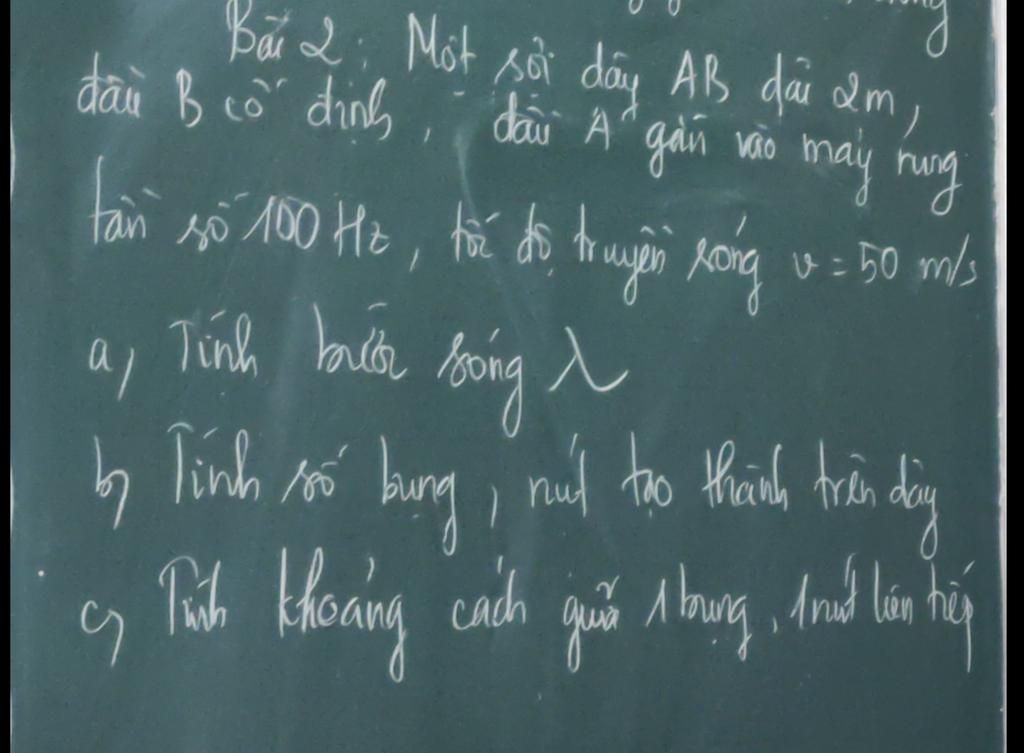 Bài 2: Một sợi dây AB dài 2m,
đầu B cố định, đầu A gắn vào máy rung
tần số 100 Hz, tốc độ truyền sóng v = 50 m/s
a, Tính bước sóng λ
b, Tính số bụng, nút tạo thành trên dây
c, Tính khoảng cách giữa 1 bụng, 1 nút liên tiếp